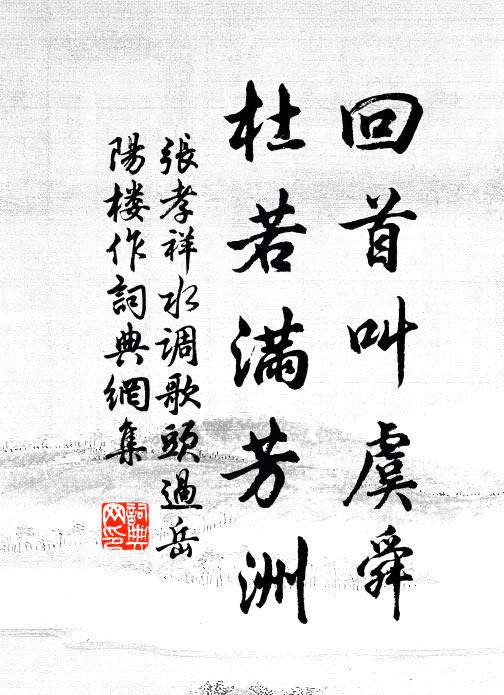 回首叫虞舜
杜若满芳洲
張孝祥水调歌頭過岳
陽楼作詞典網集
詞典
网印